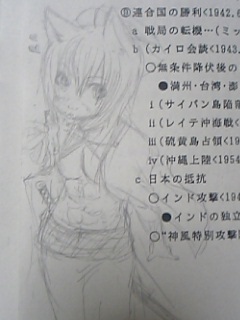 ①連合国の勝利<1942.6
a 戦局の転機…(ミッ
b (カイロ会談<1943.
○無条件降伏後の
●満州・台湾・
i (サイパン島陥
ii (レイテ沖海戦<
iii (硫黄島占領<19
iv (沖縄上陸<1954
c 日本の抵抗
○インド攻撃<194
●インドの独立
○"神風特別攻撃